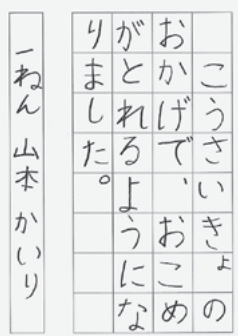 こうさいきょの
おかげで、おこめ
がとれるような
りました。
一ねん 山本 かいり